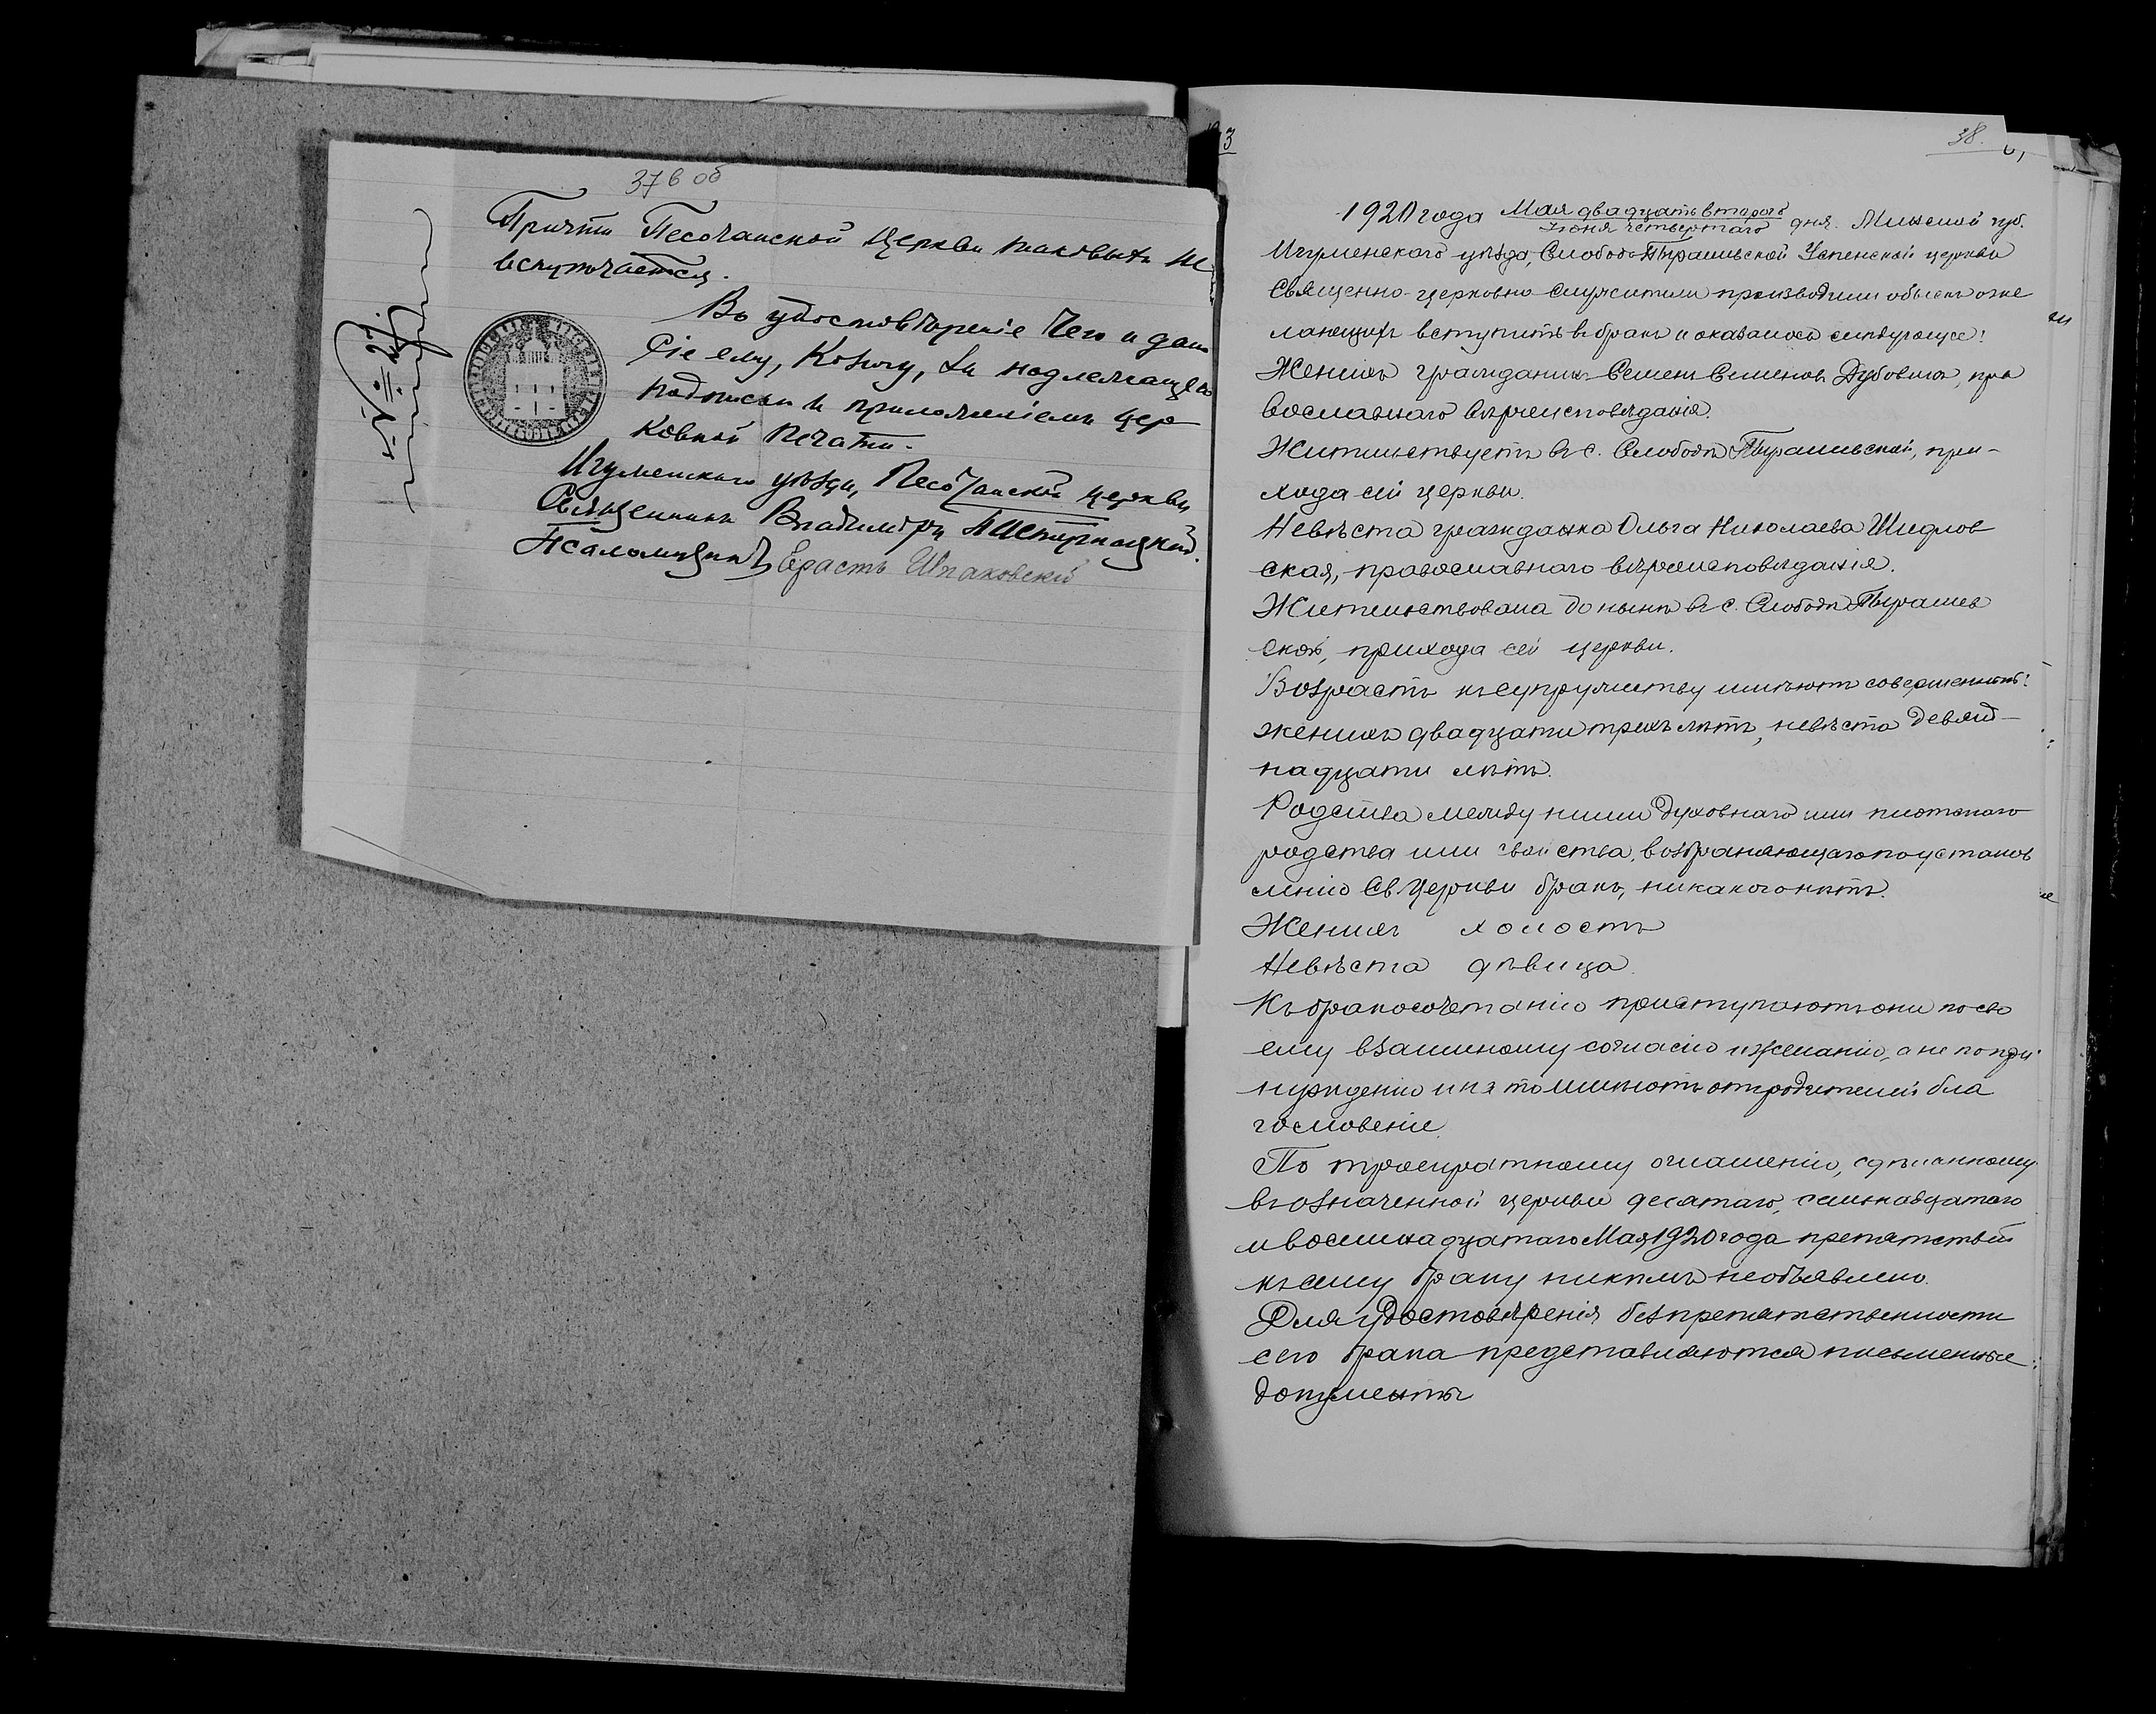 37 в об
Причта Песочанской Церкви таковыхъ не
вспрѣчается.
Въ удостовѣреніе чего и дано
сіе ему, Козичу, за надлежащею
подписью и приложеніемъ цер
ковной печати.
Игуменскаго уѣзда, Песочанской церкви
Священникъ Владиміръ
Псаломщикъ Ерастъ Шпаковскій
№ 27
3
38.
1920 года Мая двадцать второго
Іюня четвертаго дня. Минской губ.
Игуменскаго уѣзда, Слободо-Пырашевской Успенской церкви
Священно-церковно-служители производили обыскъ о же
лающихъ вступить въ бракъ и оказалось слѣдующее:
Женихъ гражданинъ Семенъ Семеновъ Дубовикъ, пра
вославнаго вѣроисповѣданія.
Жительствуетъ въ с. Слободѣ Пырашевской, при-
хода сей церкви.
Невѣста гражданка Ольга Николаева Шидлов
ская, православнаго вѣроисповѣданія.
Жительствовала до нынѣ въ с. Слободѣ Пырашев
ской, прихода сей церкви.
Возрастъ къ супружеству имѣютъ совершенный:
женихъ двадцати трехъ лѣтъ, невѣста девят-
надцати лѣтъ.
Родства между ними духовнаго или плотскаго
родства или свойства, возбраняющаго по установ
ленію Св. Церкви бракъ, никакого нѣтъ.
Женихъ холостъ
Невѣста дѣвица.
Къ бракосочетанію приступаютъ они по сво
ему взаимному согласію и желанію, а не по при
нужденію и на то имѣютъ отъ родителей бла
гословеніе.
По троекратному оглашенію, сдѣланному
въ означенной церкви десятаго, семнадцатаго
и восемнадцатаго Мая 1920 года препятствій
къ сему браку никѣмъ не объявлено.
Для удостовѣренія безпрепятственности
сего брака представляются письменные
документы